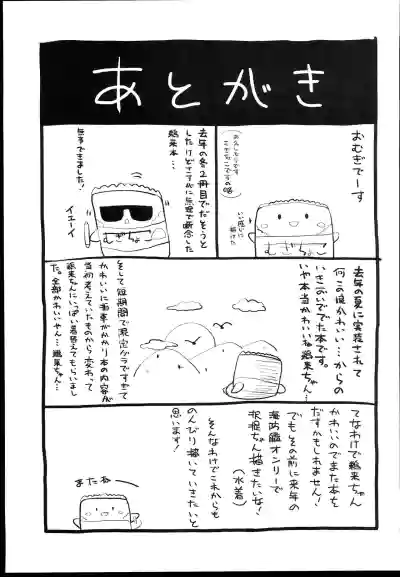 あとがき
おむぎでーす
お久しぶりです
いい感じに
描けた
去年の冬2冊目でだそうと
したけどさすがに無理で断念した
鵜来本…
無事できました!
イエーイ
むぎちょこ
去年の夏に実装されて
何この娘かわいい…からの
いきおいででた本です。
いや本当かわいいね鵜来ちゃん…
そして短期間で限定グラですぎて
かわいいに衝撃がかかり本の内容が
当初考えていたものから変わって
鵜来ちゃんにいっぱい着替えてもらいまし
た。全部かわいいやん…鵜来ちゃん…
てなわけで鵜来ちゃん
かわいいのでまた本を
だすかもしれません!
でもその前に来年の
海防艦オンリーで
択捉ちゃん描きたいな!
(水着)
そんなわけでこれからも
のんびり描いていきたいと
思います!
また本